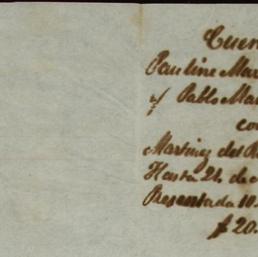 Cuen
Pauline Mar
y Pablo Mar
co
Martinez del R
Hasta 24 de
Presentada 10
$ 20.